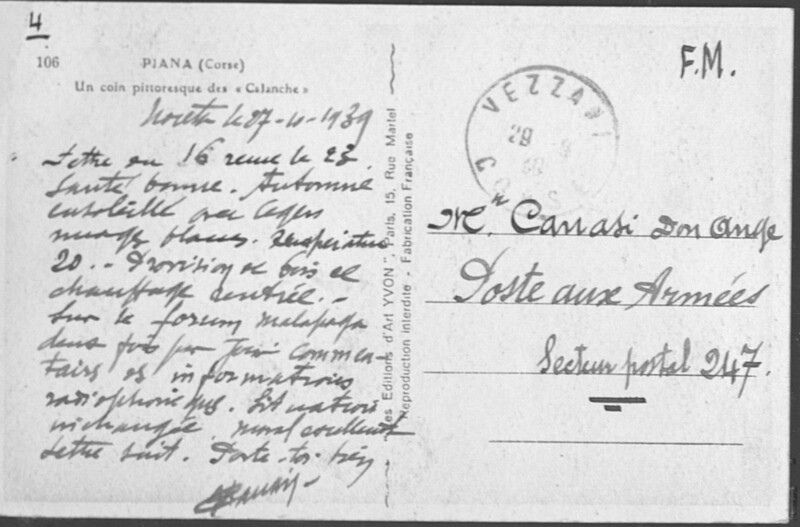 4
106 PIANA (Corse)
Un coin pittoresque des « Calanche »
le 27-10-1939
Lettre du 16 reçue le 23.
Santé bonne. Automne
ensoleillé avec légers
nuages blancs. Température
20. - Provision de bois de
chauffage rentrée. -
Sur le forum malapaga
deux fois par jour commen-
taires et informations
radiophoniques. Situation
inchangée moral excellent
Lettre suit. Porte-toi bien
Les Editions d'Art YVON", Paris, 15, Rue Martel
Reproduction Interdite - Fabrication Française
F.M.
VEZZANI
Mr Carrasi Don Ange
Poste aux Armées
Secteur postal 247.